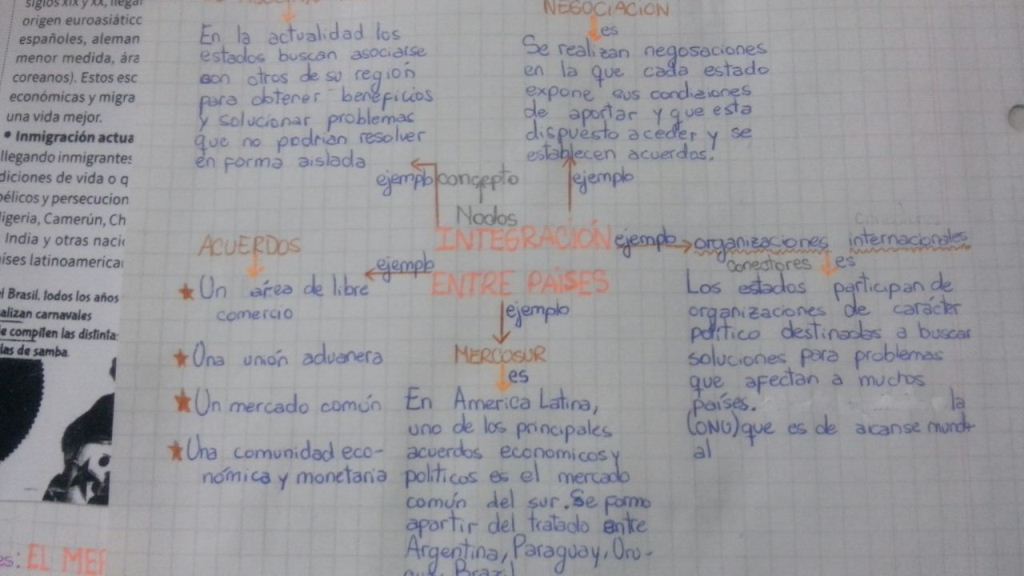 siglos XIX y XX, llegar
origen euroasiátic
españoles, aleman
menor medida, ára
coreanos). Estos esc
económicas y migra
una vida mejor.
• Inmigración actua
llegando inmigrantes
diciones de vida o q
bélicos y persecucion
ligeria, Camerún, Ch
India y otras nacio
íses latinoamerica
l Brasil, todos los años
alizan carnavales
e compiten las distinta
las de samba.
es: EL MER
En la actualidad los
estados buscan asociarse
con otros de su región
para obtener beneficios
y solucionar problemas
que no podrian resolver
en forma aislada
NEGOCIACION
es
Se realizan negosaciones
en la que cada estado
expone sus condiziones
de aportar y que esta
dispuesto aceder y se
establecen acuerdos.
ejemplo concepto
y
Nodos
ejemplo
INTEGRACIÓN
ENTRE PAÍSES
ejemplo
ACUERDOS
ejemplo
★ Un área de libre
comercio
★ Una unión aduanera
★ Un mercado común
★ Una comunidad eco-
nómica y monetaria
ejemplo
MERCOSUR
es
En America Latina,
uno de los principales
acuerdos economicos y
politicos es el mercado
común del sur. Se formo
apartir del tratado entre
Argentina, Paraguay, Uru-
Brazil
organizaciones internacionales
conectores es
Los estados participan de
organizaciones de carácter
político destinados a buscar
soluciones para problemas
que afectan a muchos
países. la
(ONU) que es de alcanse mundi
al